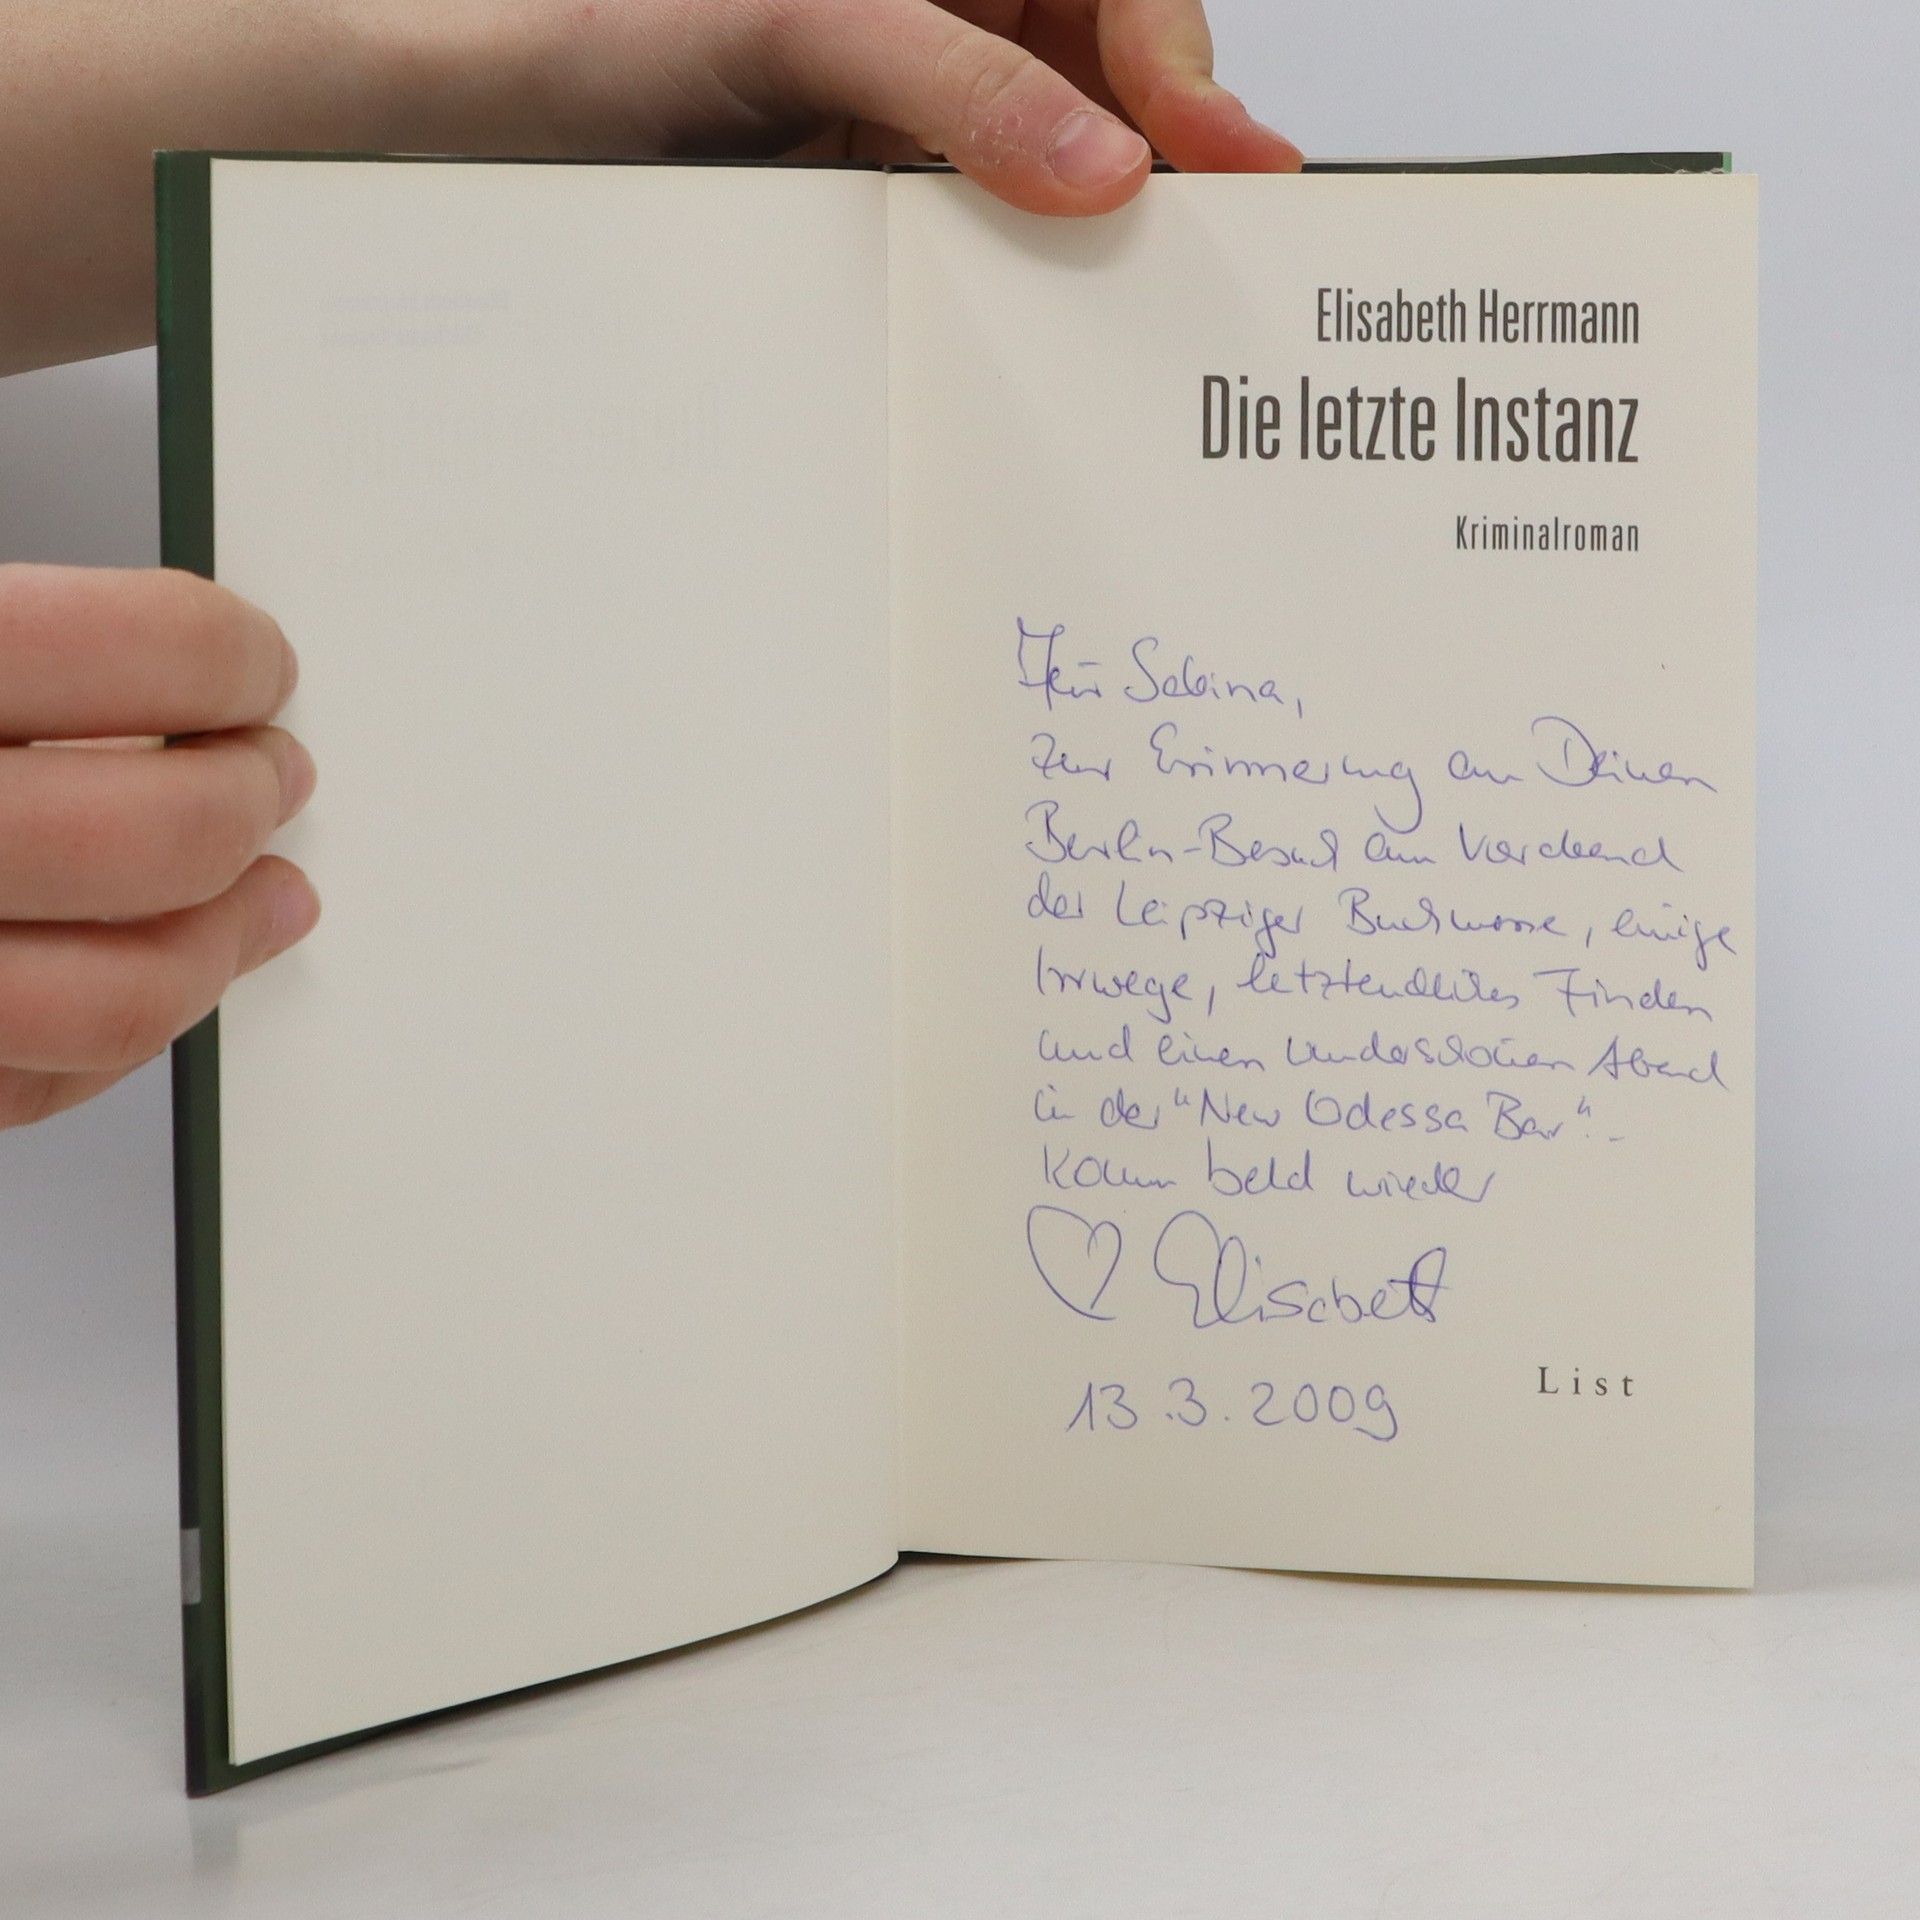 Elisabeth Herrmann
Die letzte Instanz
Kriminalroman
Für Sabina,
zur Erinnerung an Deinen
Berlin-Besuch am Vorabend
der Leipziger Buchmesse, einige
Irrwege, letztendliches Finden
und einen wunderschönen Abend
in der "New Odessa Bar".-
Komm bald wieder
Elisabeth
13.3.2009
List